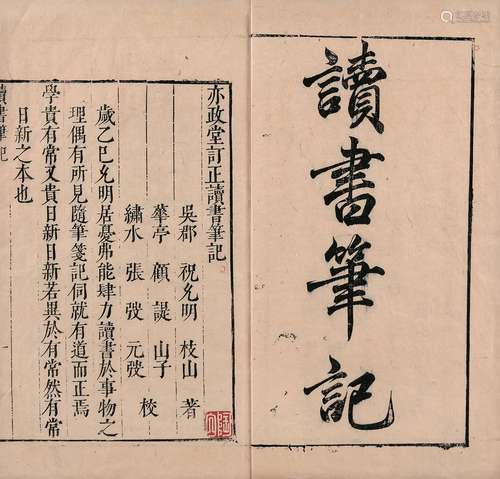 讀書筆記
亦政堂訂正讀書筆記
吳郡 祝允明 枝山 著
華亭 顧諟 山子
繡水 張弢 元弢 校
歲乙巳允明居憂弗能肆力讀書於事物之
理偶有所見隨筆箋記伺就有道而正焉
學貴有常又貴日新日新若異於有常然有常
日新之本也
讀書筆記